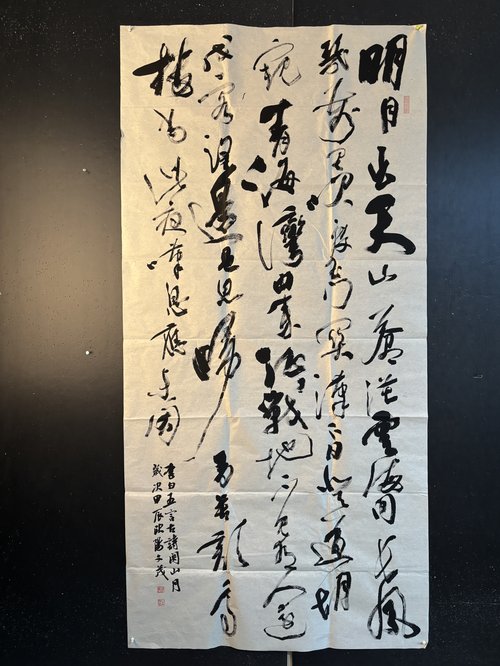 明月出天山蒼茫雲海間長風
幾萬里吹度玉門關漢下白登道胡
窺青海灣由來征戰地不見有人還
戍客望邊邑思歸多苦顏高
樓當此夜嘆息應未閑
李白五言古詩關山月
歲次甲辰歐陽文茂